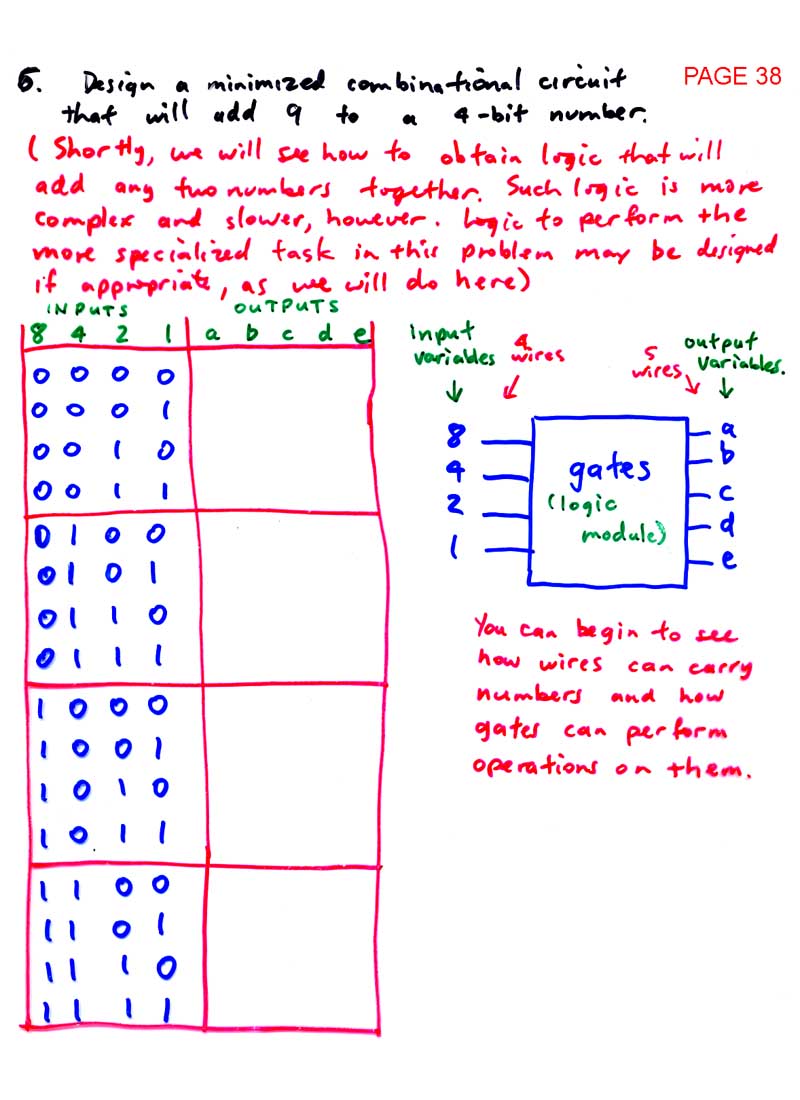 5. Design a minimized combinational circuit
PAGE 38
that will add 9 to a 4-bit number.
(Shortly, we will see how to obtain logic that will
add any two numbers together. Such logic is more
complex and slower, however. Logic to perform the
more specialized task in this problem may be designed
if appropriate, as we will do here)
INPUTS OUTPUTS
8 4 2 1 a b c d e
0 0 0 0
0 0 0 1
0 0 1 0
0 0 1 1
0 1 0 0
0 1 0 1
0 1 1 0
0 1 1 1
1 0 0 0
1 0 0 1
1 0 1 0
1 0 1 1
1 1 0 0
1 1 0 1
1 1 1 0
1 1 1 1
input
variables
4
wires
5
wires
output
variables.
8
4
2
1
gates
(logic
module)
a
b
c
d
e
You can begin to see
how wires can carry
numbers and how
gates can perform
operations on them.